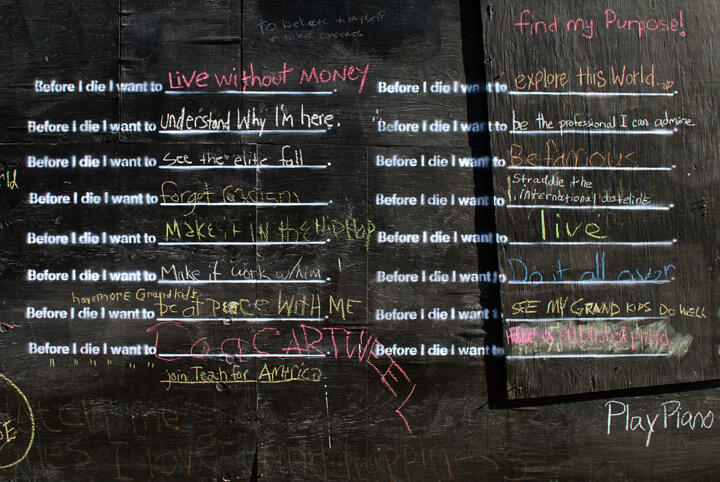 To believe in myself
& take chances
Before I die I want to Live without MONEY.
Before I die I want to understand Why I'm here.
Before I die I want to see the elite fall.
Before I die I want to forget.
Before I die I want to MAKE it IN the HipHop.
Before I die I want to Make it work w/him!
have more Grandkids
Before I die I want to be at peace WITH ME
Before I die I want to Do a CARTWHEEL
" " " " "
join Teach for AMErica
find my Purpose!
Before I die I want to explore this World.
Before I die I want to be the professional I can admire.
Before I die I want to Be famous.
Before I die I want to Straddle the
international dateline.
Before I die I want to live.
Before I die I want to Do it all over.
Before I die I want to SEE MY GRAND KIDS DO WELL
Before I die I want to Have a published photo.
Play Piano
I love
happiness